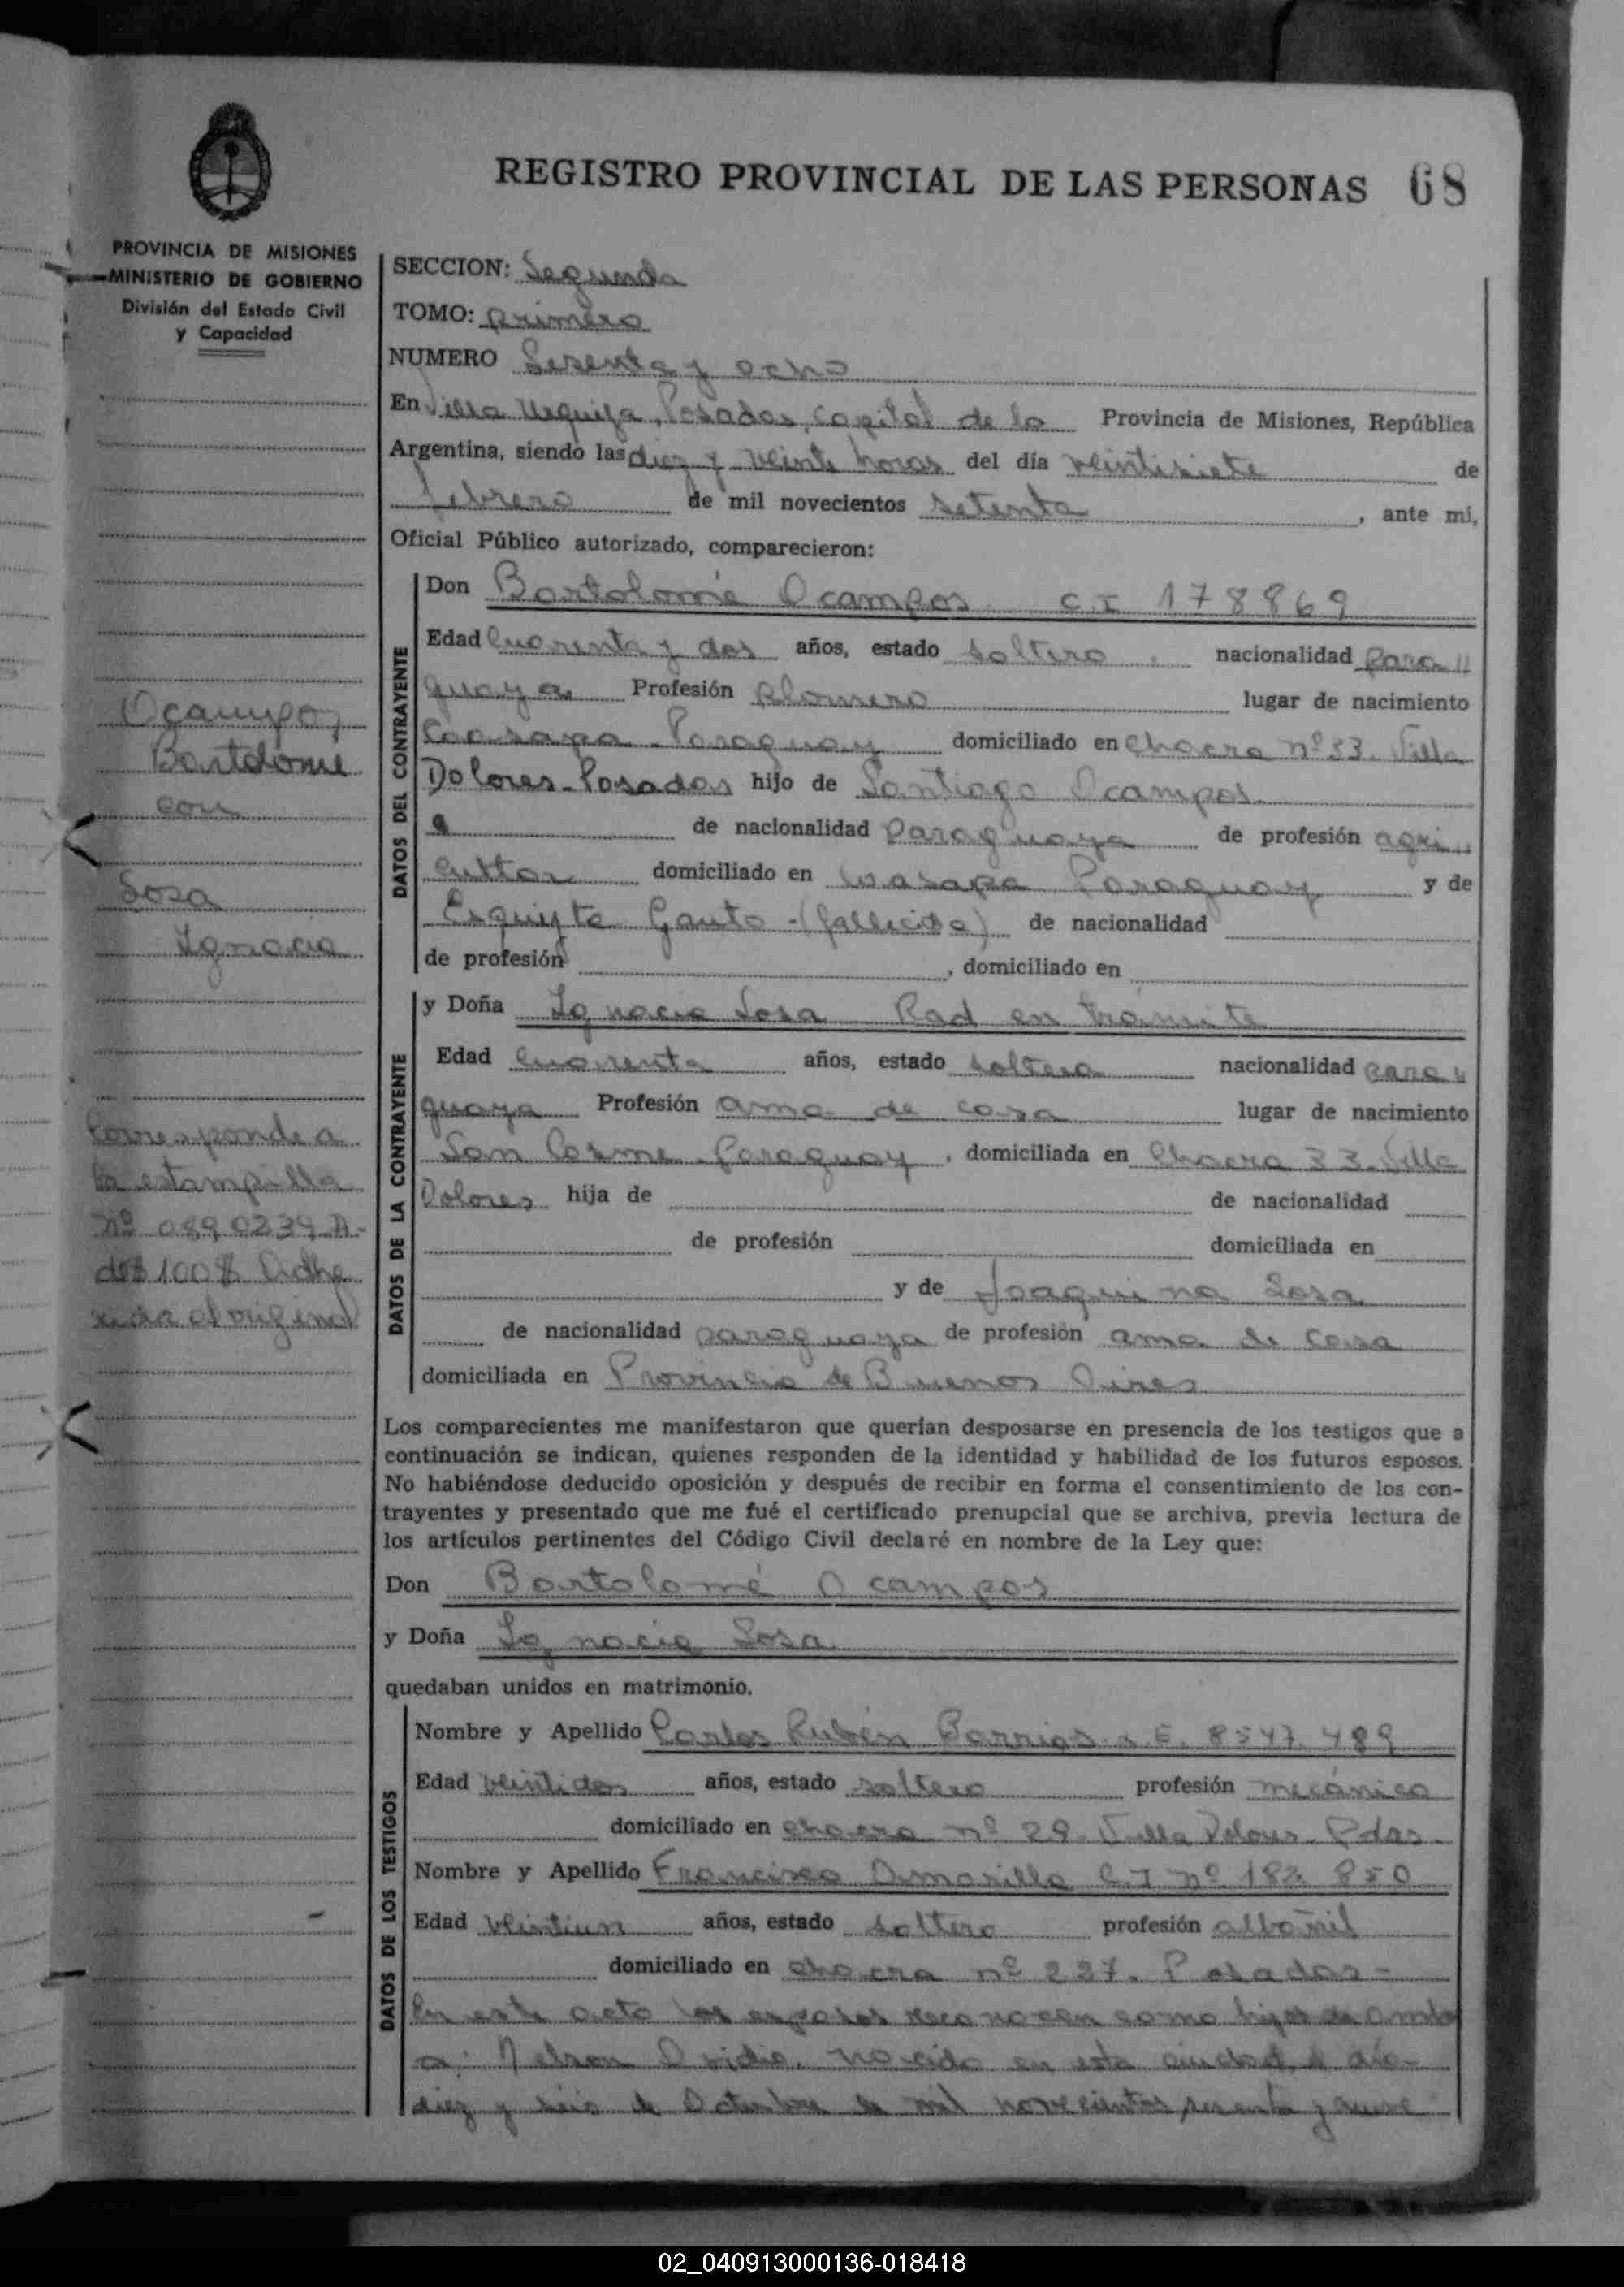 REGISTRO PROVINCIAL DE LAS PERSONAS 68
PROVINCIA DE MISIONES
MINISTERIO DE GOBIERNO
División del Estado Civil
y Capacidad
Ocampo,
Bartolomé
con
Sosa
Ignacia
Corresponde a
la estampilla
nº 0890239 A-
de $ 100 Adhe
rida al original
SECCION: Segunda
TOMO: primero
NUMERO Sesenta y ocho
En Villa Urquiza, Posadas, Capital de la Provincia de Misiones, República
Argentina, siendo las diez y veinte horas del día veintisiete de
febrero de mil novecientos setenta, ante mí,
Oficial Público autorizado, comparecieron:
DATOS DEL CONTRAYENTE
Don Bartolomé Ocampos C.I 178869
Edad Cuarenta y dos años, estado soltero nacionalidad para
guaya Profesión plomero lugar de nacimiento
Caasapa - Paraguay domiciliado en Chacra nº 33. Villa
Dolores - Posadas hijo de Santiago Ocampos
de nacionalidad paraguaya de profesión agri
cultor domiciliado en Caasapa Paraguay y de
Gauto - (fallecida) de nacionalidad
de profesión , domiciliado en
DATOS DE LA CONTRAYENTE
y Doña Ignacia Sosa Rad en trámite
Edad Cuarenta años, estado soltera nacionalidad para
guaya Profesión ama de casa lugar de nacimiento
San Cosme - Paraguay, domiciliada en Chacra 33. Villa
Dolores hija de de nacionalidad
de profesión domiciliada en
y de Joaquina Sosa
de nacionalidad paraguaya de profesión ama de casa
domiciliada en Provincia de Buenos Aires
Los comparecientes me manifestaron que querían desposarse en presencia de los testigos que a
continuación se indican, quienes responden de la identidad y habilidad de los futuros esposos.
No habiéndose deducido oposición y después de recibir en forma el consentimiento de los con-
trayentes y presentado que me fué el certificado prenupcial que se archiva, previa lectura de
los artículos pertinentes del Código Civil declaré en nombre de la Ley que:
Don Bartolomé Ocampos
y Doña Ignacia Sosa
quedaban unidos en matrimonio.
DATOS DE LOS TESTIGOS
Nombre y Apellido Carlos Rubén Barrios L.E. 8547.489
Edad veintidos años, estado soltero profesión mecánico
domiciliado en chacra nº 29. Villa Dolores. Pdas.
Nombre y Apellido Francisco Amarilla C.I nº 850
Edad veintiun años, estado soltero profesión albañil
domiciliado en chacra nº 227. Posadas -
En este acto los esposos reconocen como hijos de ambos
a: Nelson Ovidio, nacido en esta ciudad, el día
diez y seis de Octubre de mil novecientos sesenta y nueve
02_040913000136-018418